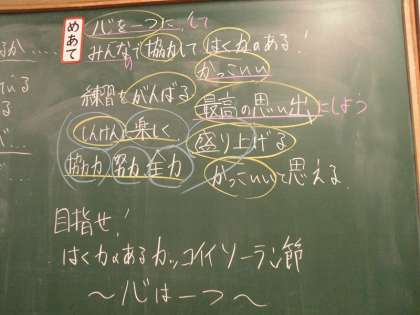 めあて
心を一つにして
みんなで協力してはく力のある!
かっこいい
練習をがんばる
最高の思い出にしよう
しんけん 楽しく
盛り上げる
協力 努力 全力
かっこいいて思える
目指せ!
はく力のあるカッコイイソーラン節
〜心は一つ〜